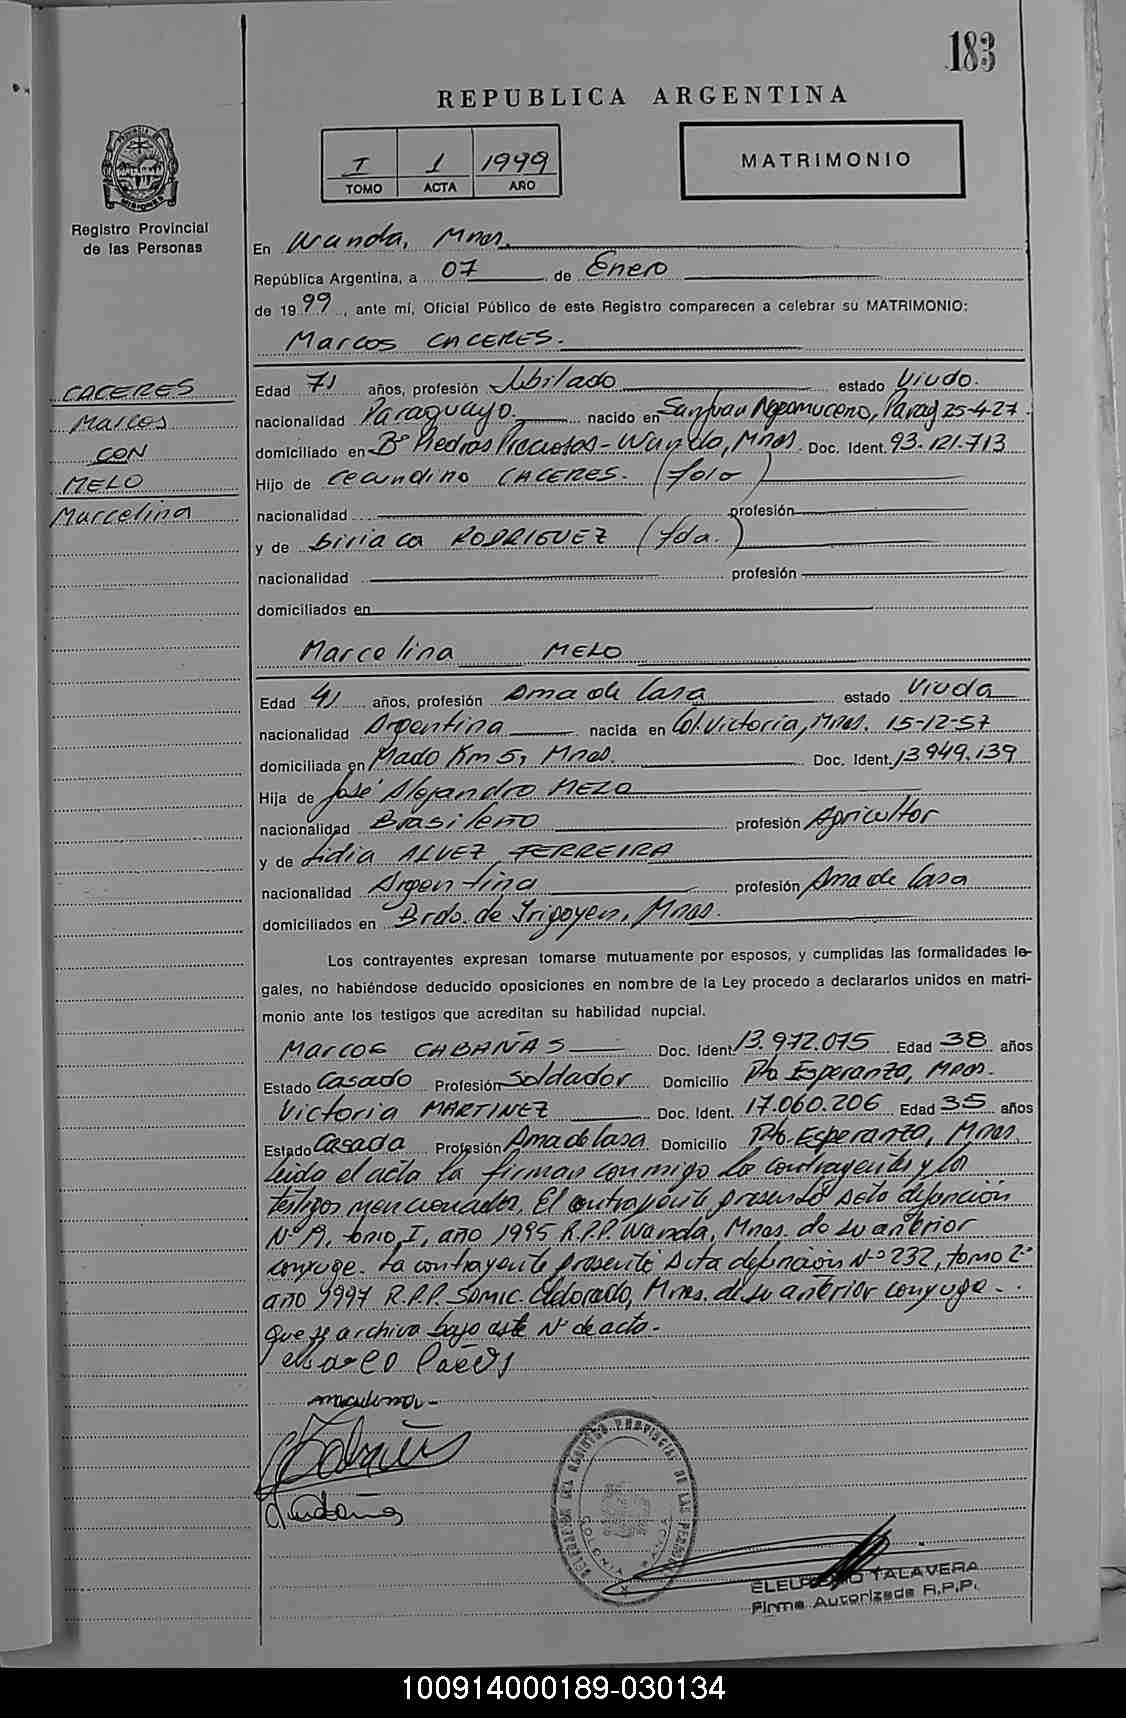 183
REPUBLICA ARGENTINA
I 1 1999
TOMO ACTA AÑO
MATRIMONIO
Registro Provincial
de las Personas
CACERES
Marcos
CON
MELO
Marcelina
En Wanda, Mnes.
República Argentina, a 07 de Enero
de 1999, ante mí, Oficial Público de este Registro comparecen a celebrar su MATRIMONIO:
Marcos CACERES.
Edad 71 años, profesión Jubilado estado Viudo.
nacionalidad Paraguayo. nacido en San Juan Nepomuceno, Parag 25-4-27.
domiciliado en Bº Piedras Preciosas - Wanda, Mnes. Doc. Ident. 93.121.713
Hijo de Cecundino CACERES. (fdo)
nacionalidad profesión
y de Biriaca RODRIGUEZ (fda.)
nacionalidad profesión
domiciliados en
Marcelina MELO
Edad 41 años, profesión Ama de Casa estado Viuda
nacionalidad Argentina nacida en Col. Victoria, Mnes. 15-12-57
domiciliada en Mado Km 5, Mnes. Doc. Ident. 13.949.139
Hija de José Alejandro MELO
nacionalidad Brasileño profesión Agricultor
y de Lidia ALVEZ FERREIRA
nacionalidad Argentina profesión Ama de Casa
domiciliados en Brdo. de Irigoyen, Mnes.
Los contrayentes expresan tomarse mutuamente por esposos, y cumplidas las formalidades le-
gales, no habiéndose deducido oposiciones en nombre de la Ley procedo a declararlos unidos en matri-
monio ante los testigos que acreditan su habilidad nupcial.
Marcos CABAÑAS Doc. Ident. 13.972.075 Edad 38 años
Estado Casado Profesión Soldador Domicilio Pto Esperanza, Mnes.
Victoria MARTINEZ Doc. Ident. 17.060.206 Edad 35 años
Estado Casada Profesión Ama de Casa Domicilio Pto. Esperanza, Mnes.
Leida el acta la firman conmigo los contrayentes y los
testigos mencionados. El contrayente presentó Acta defunción
Nº tomo I, año 1995 R.P.P. Wanda, Mnes. de su anterior
conyuge. La contrayente presentó Acta defunción Nº 232, tomo 2º
año 1997 R.P.P. Eldorado, Mnes. de su anterior conyuge.
Que se archiva bajo este Nº de acta.
DELEGACION DEL REGISTRO PROVINCIAL DE LAS PERSONAS
COLONIA WANDA
TALAVERA
Firma Autorizada R.P.P.
100914000189-030134